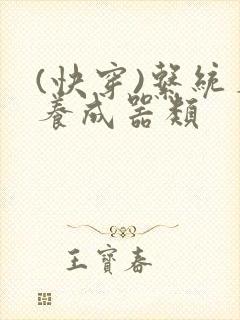 (快穿)繫統
養成器類
王寶春